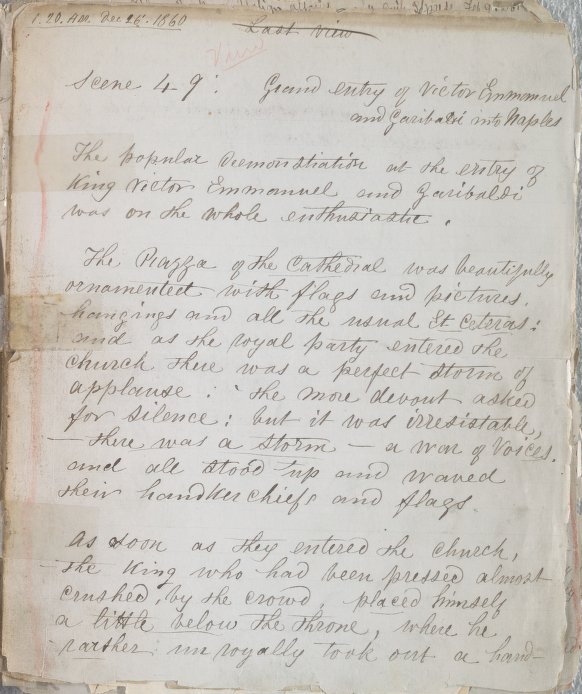 1.20. Am. Dec 26. 1860
Last view
Scene 49: Grand entry of Victor Emmanuel
and Garibaldi into Naples
The popular Demonstration at the entry of
King Victor Emmanuel and Garibaldi
was on the whole enthusiastic.
The Piazza of the Cathedral was beautifully
ornamented with flags and pictures,
hangings and all the usual Et Ceteras:
and as the royal party entered the
church there was a perfect storm of
applause: the more devout asked
for silence: but it was irresistable,
— there was a storm — a war of Voices.
and all stood up and waved
their handkerchiefs and flags.
As soon as they entered the church,
the King who had been pressed almost
crushed, by the crowd, placed himself
a little below the throne, where he
rather unroyally took out a hand-